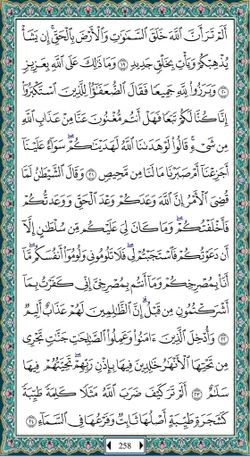 أَلَمْ تَرَ أَنَّ ٱللَّهَ خَلَقَ ٱلسَّمَٰوَٰتِ وَٱلْأَرْضَ بِٱلْحَقِّ إِن يَشَأْ
يُذْهِبْكُمْ وَيَأْتِ بِخَلْقٍ جَدِيدٍ ١٩ وَمَا ذَٰلِكَ عَلَى ٱللَّهِ بِعَزِيزٍ
٢٠ وَبَرَزُوا۟ لِلَّهِ جَمِيعًا فَقَالَ ٱلضُّعَفَٰٓؤُا۟ لِلَّذِينَ ٱسْتَكْبَرُوٓا۟
إِنَّا كُنَّا لَكُمْ تَبَعًا فَهَلْ أَنتُم مُّغْنُونَ عَنَّا مِنْ عَذَابِ ٱللَّهِ
مِن شَىْءٍ قَالُوا۟ لَوْ هَدَىٰنَا ٱللَّهُ لَهَدَيْنَٰكُمْ سَوَآءٌ عَلَيْنَآ
أَجَزِعْنَآ أَمْ صَبَرْنَا مَا لَنَا مِن مَّحِيصٍ ٢١ وَقَالَ ٱلشَّيْطَٰنُ لَمَّا
قُضِىَ ٱلْأَمْرُ إِنَّ ٱللَّهَ وَعَدَكُمْ وَعْدَ ٱلْحَقِّ وَوَعَدتُّكُمْ
فَأَخْلَفْتُكُمْ وَمَا كَانَ لِىَ عَلَيْكُم مِّن سُلْطَٰنٍ إِلَّآ
أَن دَعَوْتُكُمْ فَٱسْتَجَبْتُمْ لِى فَلَا تَلُومُونِى وَلُومُوٓا۟ أَنفُسَكُم مَّآ
أَنَا۠ بِمُصْرِخِكُمْ وَمَآ أَنتُم بِمُصْرِخِىَّ إِنِّى كَفَرْتُ بِمَآ
أَشْرَكْتُمُونِ مِن قَبْلُ إِنَّ ٱلظَّٰلِمِينَ لَهُمْ عَذَابٌ أَلِيمٌ
٢٢ وَأُدْخِلَ ٱلَّذِينَ ءَامَنُوا۟ وَعَمِلُوا۟ ٱلصَّٰلِحَٰتِ جَنَّٰتٍ تَجْرِى
مِن تَحْتِهَا ٱلْأَنْهَٰرُ خَٰلِدِينَ فِيهَا بِإِذْنِ رَبِّهِمْ تَحِيَّتُهُمْ فِيهَا
سَلَٰمٌ ٢٣ أَلَمْ تَرَ كَيْفَ ضَرَبَ ٱللَّهُ مَثَلًا كَلِمَةً طَيِّبَةً
كَشَجَرَةٍ طَيِّبَةٍ أَصْلُهَا ثَابِتٌ وَفَرْعُهَا فِى ٱلسَّمَآءِ ٢٤
258